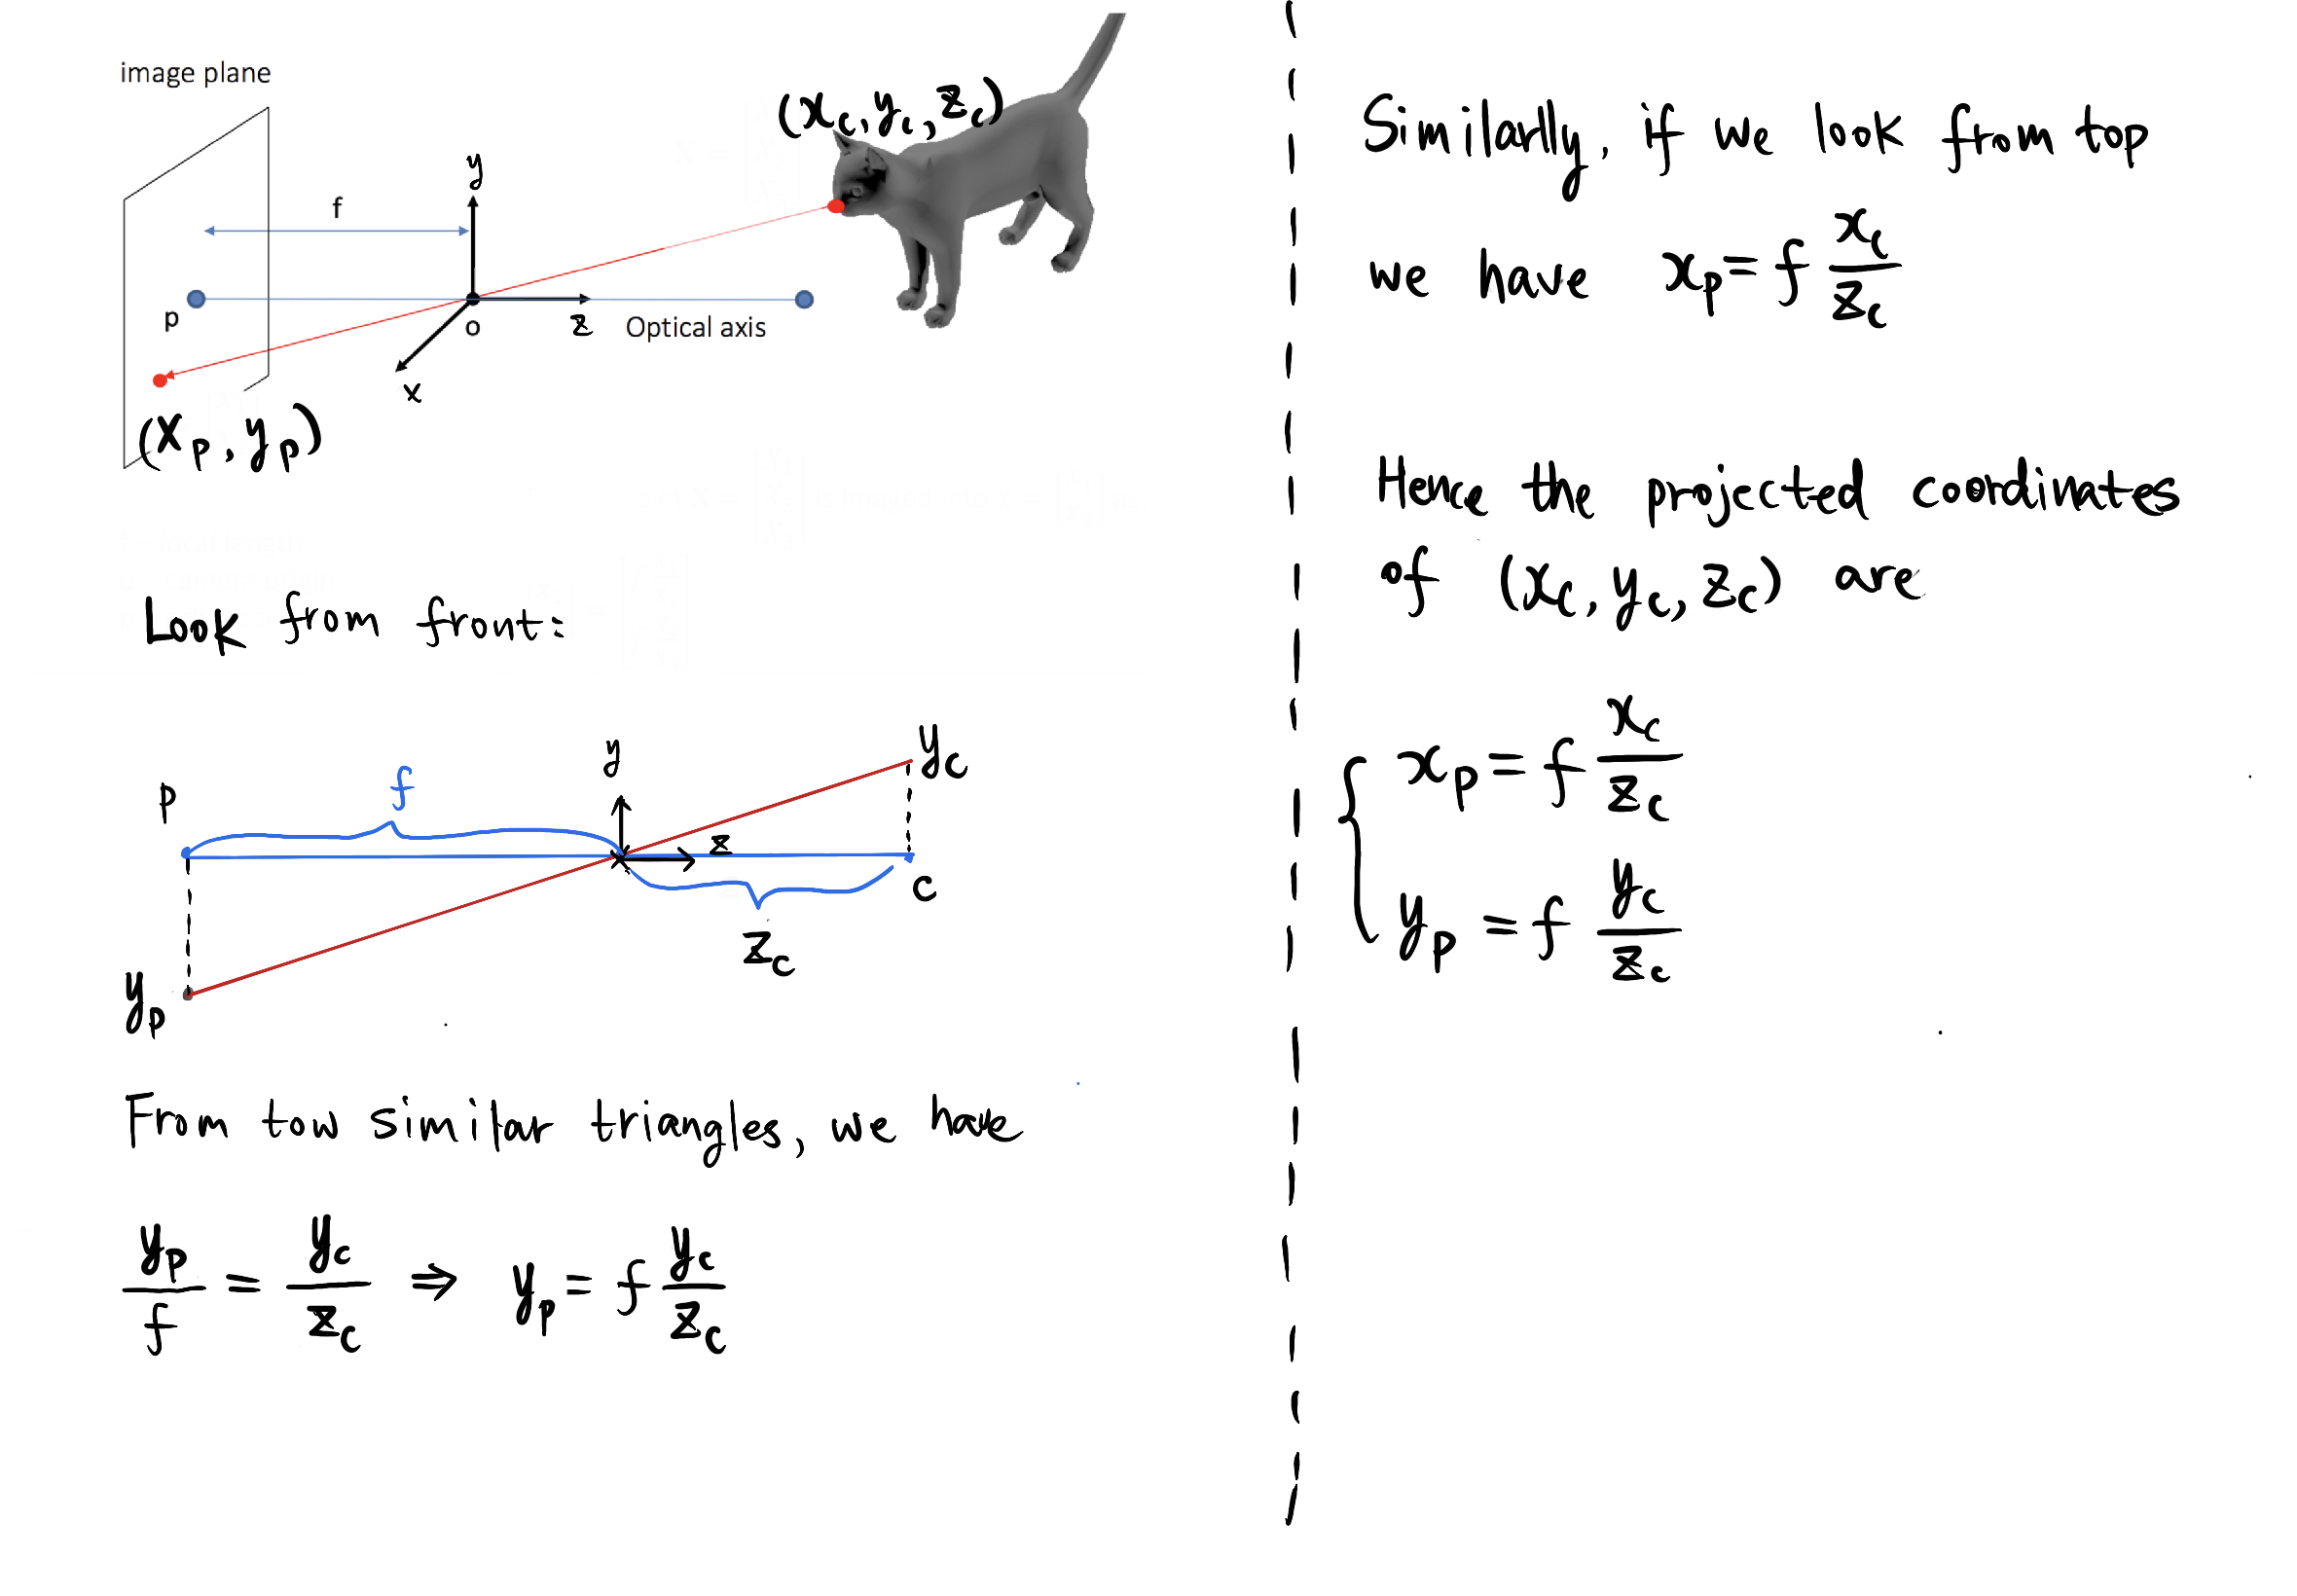 image plane
(x_c, y_c, z_c)
y
f
p
o
z
Optical axis
x
(x_p, y_p)
Look from front:
p
f
y
y_c
z
c
z_c
y_p
From tow similar triangles, we have
y_p/f = y_c/z_c ⇒ y_p = f y_c/z_c
Similarlly, if we look from top
we have x_p = f x_c/z_c
Hence the projected coordinates
of (x_c, y_c, z_c) are
{ x_p = f x_c/z_c
y_p = f y_c/z_c